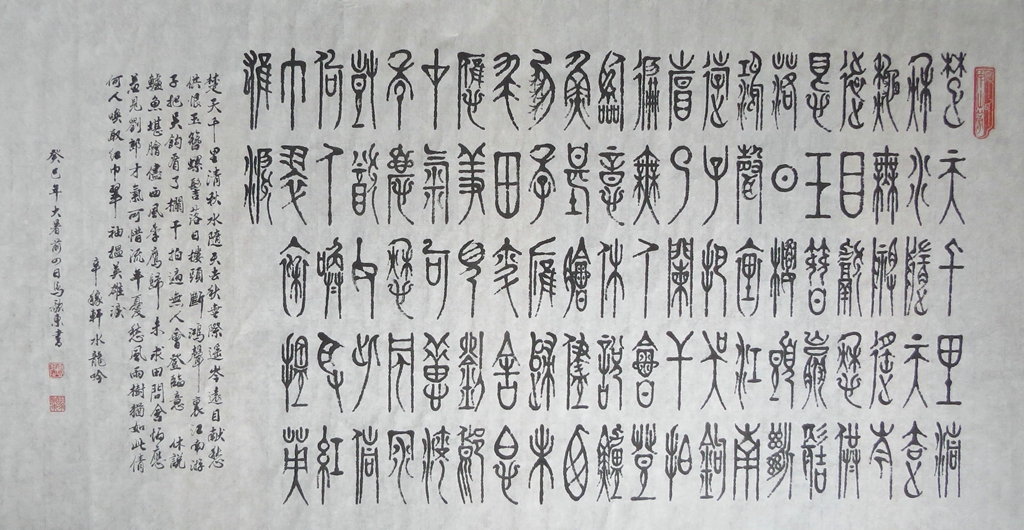 楚天千里清
秋水隨天去
秋無際遙岑
遠目獻愁供
恨玉簪螺髻
落日樓頭斷
鴻聲裏江南
游子把吳鉤
看了闌干拍
遍無人會登
臨意休說鱸
魚堪膾儘西
風季鷹歸未
求田問舍怕
應羞見劉郎
才氣可惜流
年憂愁風雨
樹猶如此倩
何人喚取紅
巾翠袖搵英
雄淚
楚天千里清秋水隨天去秋無際遙岑遠目獻愁
供恨玉簪螺髻落日樓頭斷鴻聲裏江南游
子把吳鉤看了欄干拍遍無人會登臨意休說
鱸魚堪膾儘西風季鷹歸未求田問舍怕應
羞見劉郎才氣可惜流年憂愁風雨樹猶如此倩
何人喚取紅巾翠袖搵英雄淚
辛稼軒水龍吟
癸巳年大暑前四日馬東書